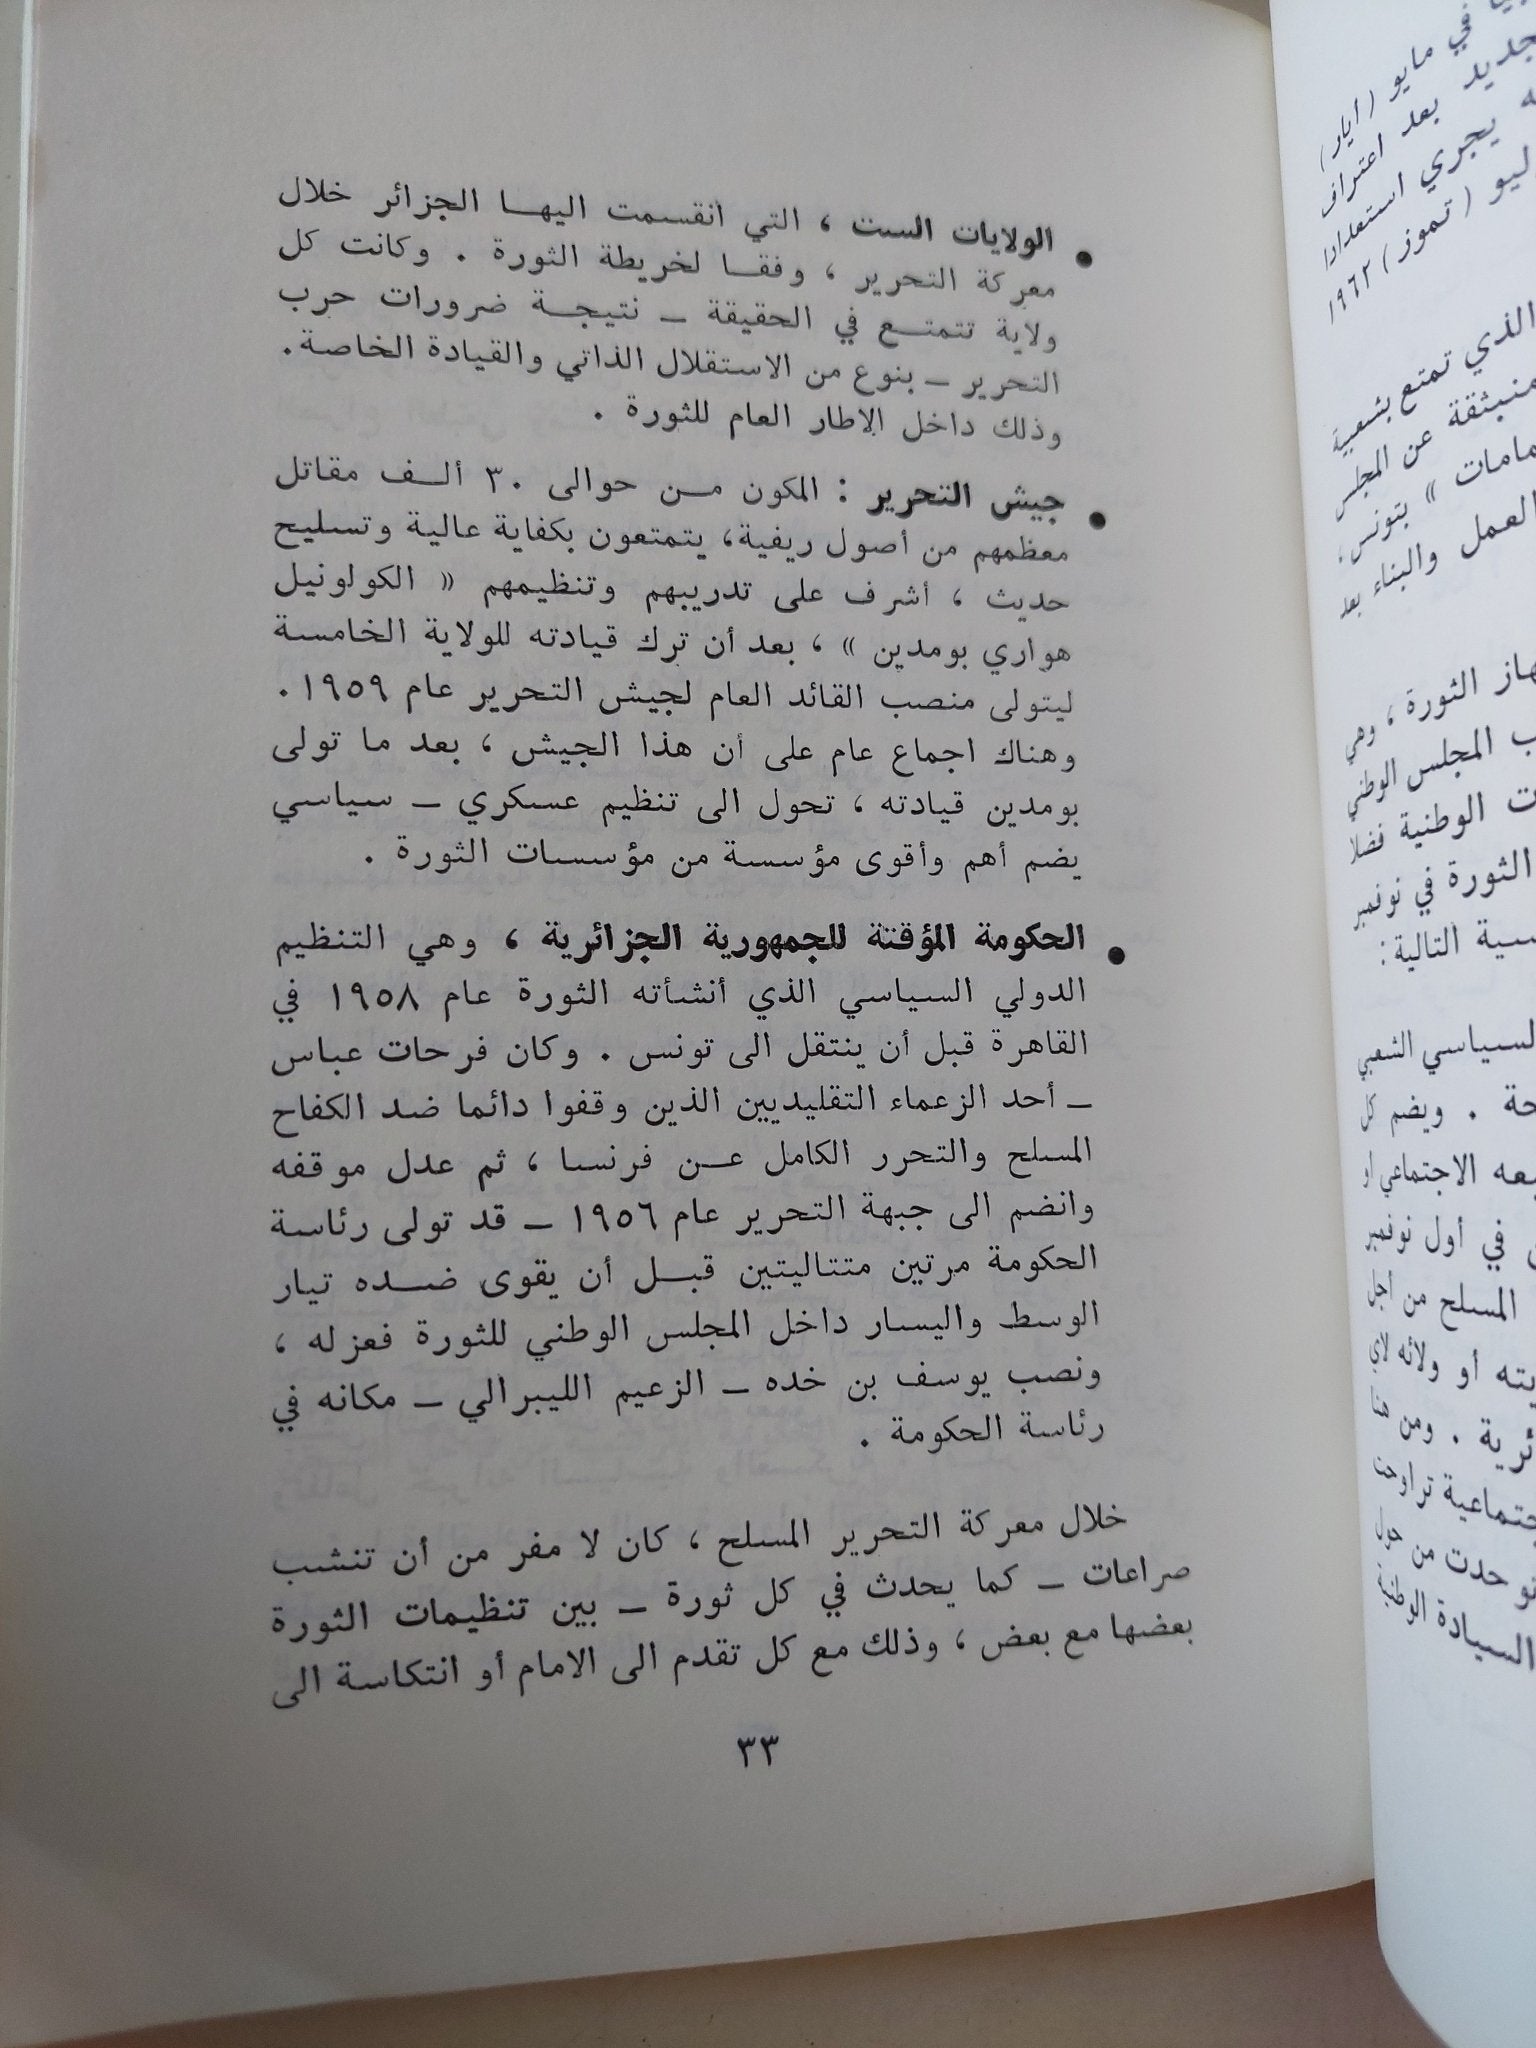 ● الولايات الست ، التي انقسمت اليهـا الجزائر خلال
معركة التحرير ، وفقـا لخريطة الثورة . وكانت كل
ولاية تتمتـع في الحقيقة ـ نتيجـة ضرورات حرب
التحرير ـ بنوع من الاستقلال الذاتي والقيادة الخاصة.
وذلك داخل الاطار العام للثورة .
● جيش التحرير : المكون مـن حوالى ٣٠ ألـف مقاتل
معظمهم من أصول ريفية، يتمتعون بكفاية عالية وتسليح
حديث ، أشرف على تدريبهم وتنظيمهم « الكولونيل
هواري بومدين » ، بعد أن ترك قيادته للولاية الخامسة
ليتولى منصب القائد العام لجيش التحرير عام ١٩٥٩.
وهناك اجماع عام على أن هذا الجيش ، بعد ما تولى
بومدين قيادته ، تحول الى تنظيم عسكري ـ سياسي
يضم أهم وأقوى مؤسسة من مؤسسات الثورة .
● الحكومة المؤقتة للجمهورية الجزائرية ، وهي التنظيم
الدولي السياسي الذي أنشأته الثورة عام ١٩٥٨ في
القاهرة قبل أن ينتقل الى تونس . وكان فرحات عباس
ـ أحد الزعماء التقليديين الذين وقفوا دائما ضد الكفاح
المسلح والتحرر الكامل عـن فرنسا ، ثم عدل موقفه
وانضم الى جبهة التحرير عام ١٩٥٦ ـ قد تولى رئاسة
الحكومة مرتين متتاليتين قبـل أن يقوى ضـده تيار
الوسط واليسار داخل المجلس الوطني للثورة فعزله ،
ونصب يوسف بن خده ـ الزعيم الليبرالي ـ مكانه في
رئاسة الحكومة .
خلال معركة التحرير المسلح ، كان لا مفر من أن تنشب
صراعات ـ كما يحدث في كل ثورة ـ بين تنظيمات الثورة
بعضها مع بعض ، وذلك مع كل تقدم الى الامام أو انتكاسة الى
٣٣
في مايو ( ايار )
بعد اعتراف
يجري استعدادا
( تموز ) ١٩٦٢
الذي تمتع بشعبية
منبثقة عن المجلس
» بتونس ،
العمل والبناء بعد
الثورة ، وهي
المجلس الوطني
الوطنية فضلا
الثورة في نوفمبر
التالية :
السياسي الشعبي
. ويضم كل
الاجتماعي او
في أول نوفمبر
المسلح من أجل
أو ولائه لاي
. ومن هنا
تراوحت
من حول
السيادة الوطنية